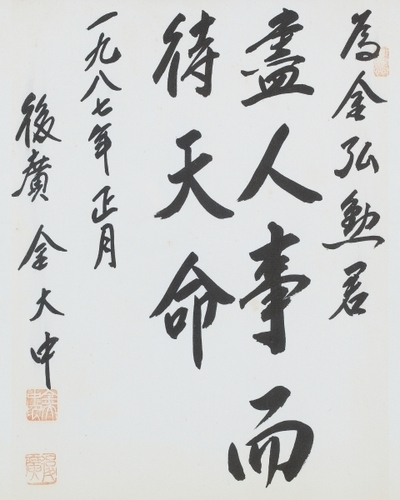 為金弘勲君
盡人事而
待天命
一九八七年 正月
後廣 金大中